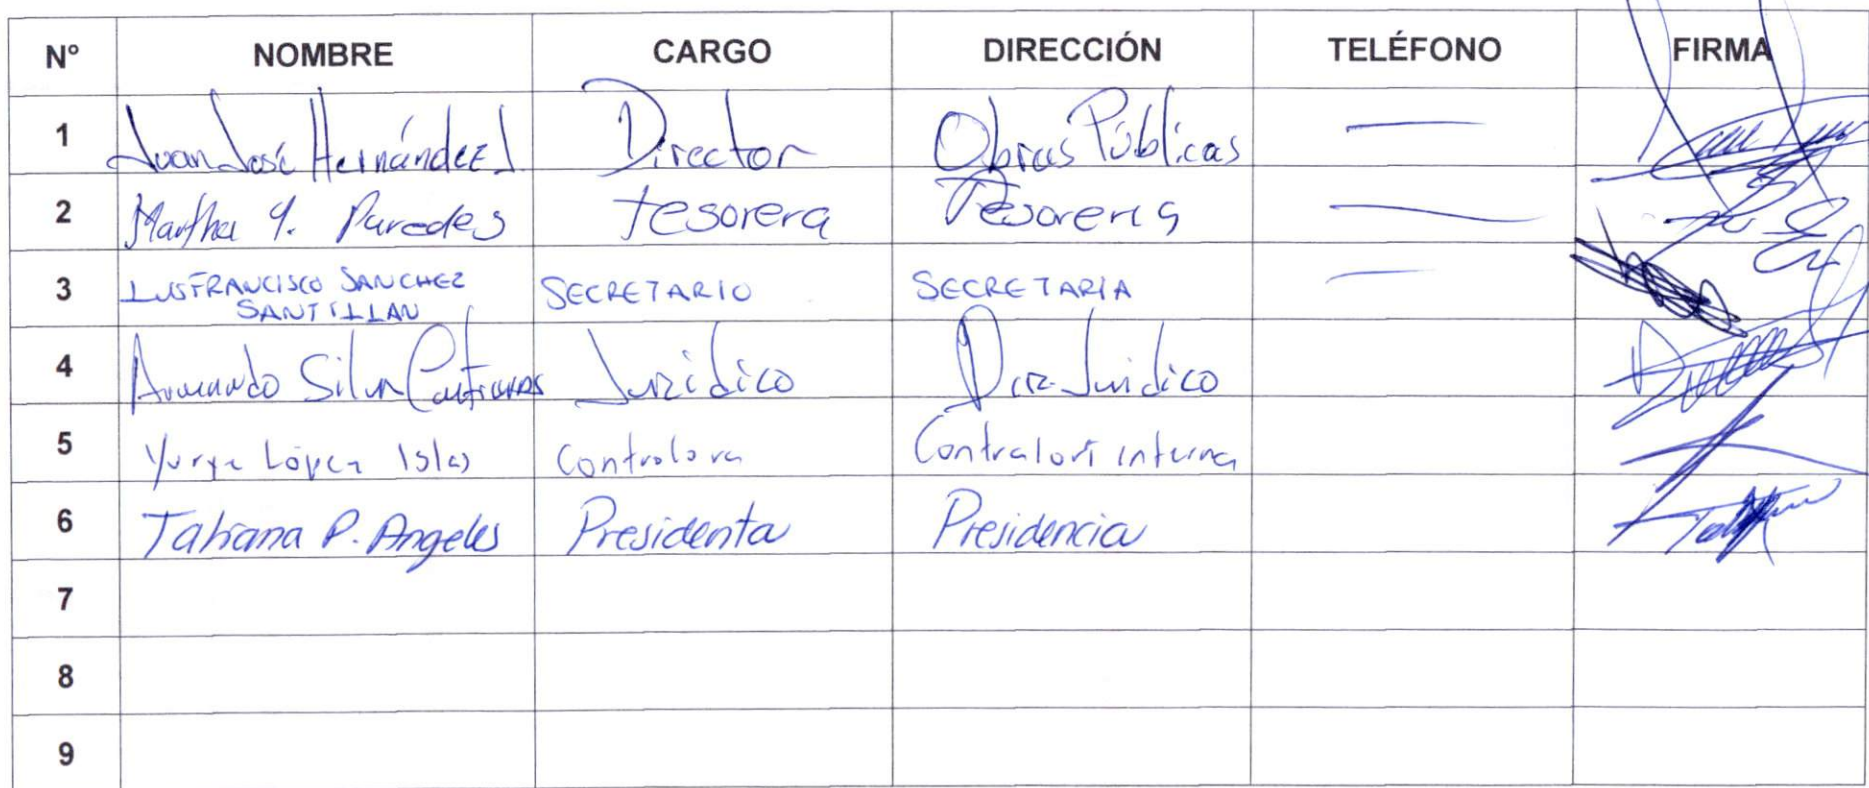 N° NOMBRE CARGO DIRECCIÓN TELÉFONO FIRMA
1 Juan José Hernández J. Director Obras Públicas
2 Martha Y. Paredes Tesorera Tesoreria
3 LUIS FRANCISCO SANCHEZ SECRETARIO SECRETARIA
SANTILLAN
4 Armando Silva Contreras Juridico Dir. Juridico
5 López Islas Contralora Contralori interna
6 Tatiana P. Angeles Presidenta Presidencia
7
8
9